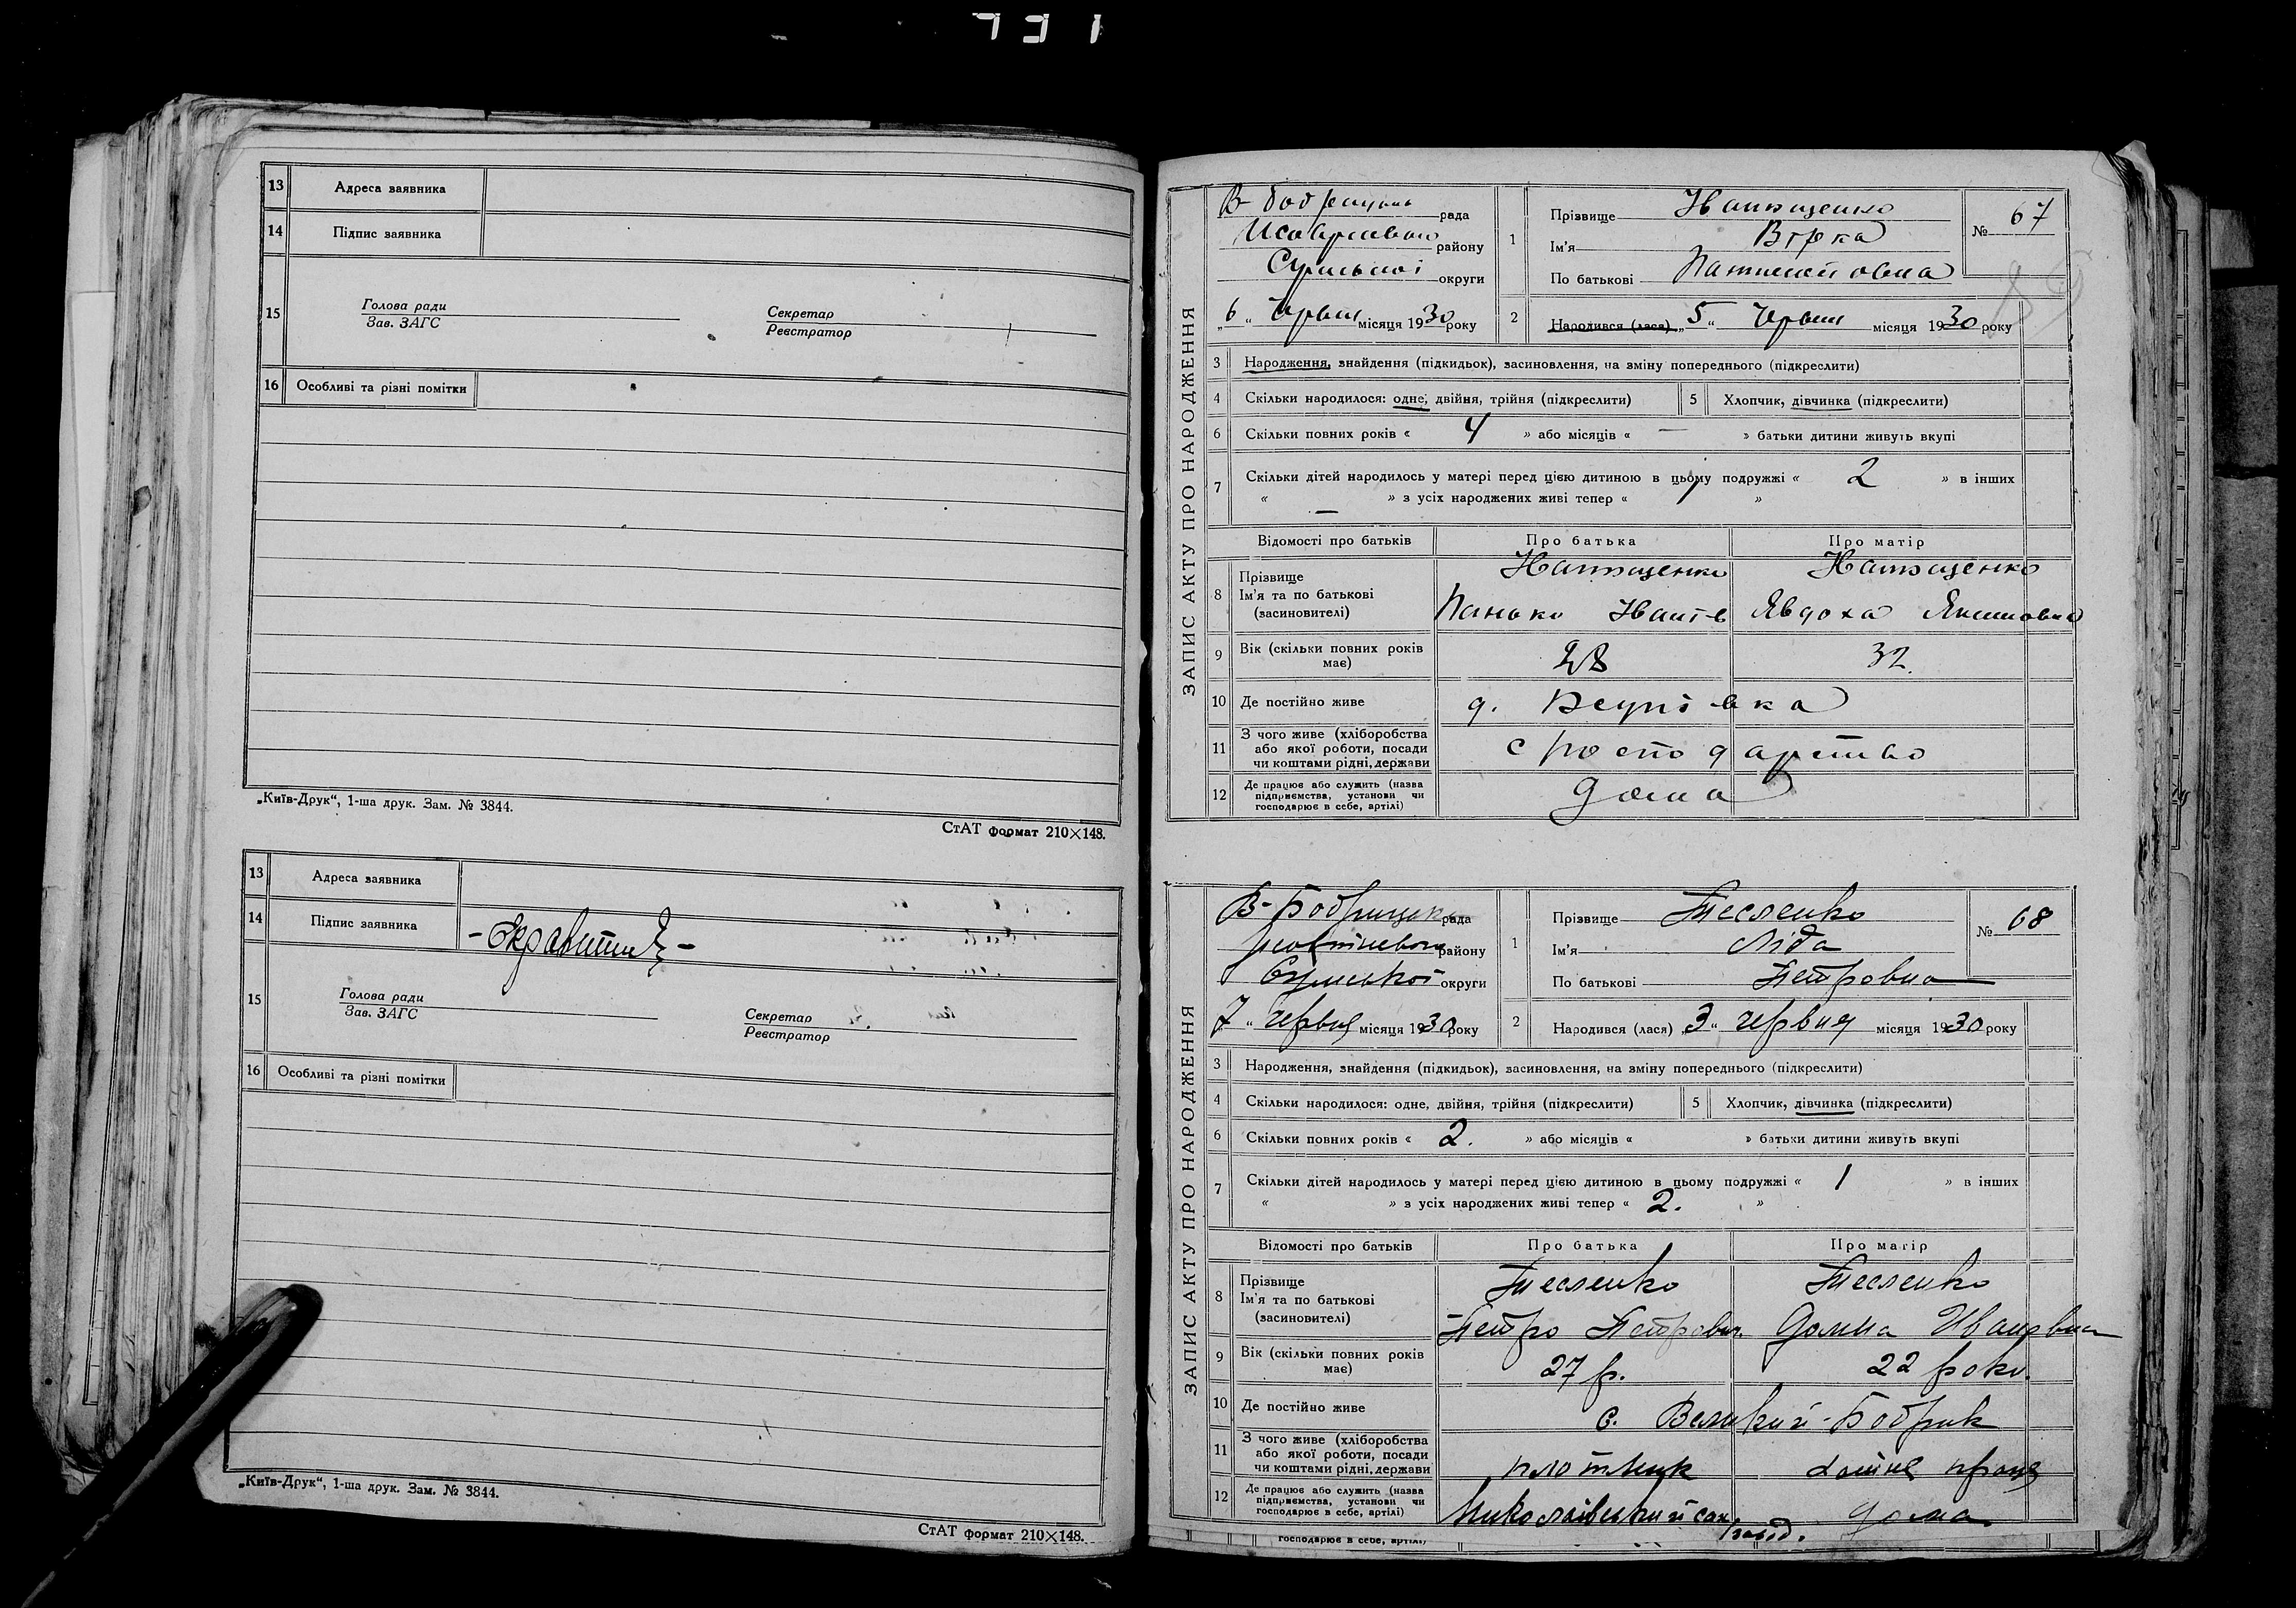 731
13 Адреса заявника
14 Підпис заявника
15 Голова ради
Зав. ЗАГС
Секретар
Реєстратор
16 Особливі та різні помітки
„Київ-Друк“, 1-ша друк. Зам. № 3844.
СтАТ формат 210×148.
13 Адреса заявника
14 Підпис заявника
15 Голова ради
Зав. ЗАГС
Секретар
Реєстратор
16 Особливі та різні помітки
„Київ-Друк“, 1-ша друк. Зам. № 3844.
СтАТ формат 210×148.
ЗАПИС АКТУ ПРО НАРОДЖЕННЯ
рада
району
Сумської округи
„6“ Червн місяця 1930 року
1 Прізвище
Ім'я Вірка
По батькові
№ 67
2 Народився (лася) „5“ Червн місяця 1930 року
3 Народження, знайдення (підкидьок), засиновлення, на зміну попереднього (підкреслити)
4 Скільки народилося: одне, двійня, трійня (підкреслити)
5 Хлопчик, дівчинка (підкреслити)
6 Скільки повних років « 4 » або місяців « — » батьки дитини живуть вкупі
7 Скільки дітей народилось у матері перед цією дитиною в цьому подружжі « 2 » в інших
« — » з усіх народжених живі тепер « 1 »
Відомості про батьків Про батька Про матір
8 Прізвище
Ім'я та по батькові
(засновителі)
Панько Іванів Явдоха Якимовна
9 Вік (скільки повних років має) 28 32
10 Де постійно живе
11 З чого живе (хліборобства або якої роботи, посади чи коштами рідні, держави
12 Де працює або служить (назва підприємства, установи чи господарює в себе, артілі) дома
ЗАПИС АКТУ ПРО НАРОДЖЕННЯ
В-Бобрицька рада
району
Сумської округи
7 “ червня місяця 1930 року
1 Прізвище Тесленко
Ім'я Ліда
По батькові Петровна
№ 68
2 Народився (лася) „3“ червня місяця 1930 року
3 Народження, знайдення (підкидьок), засиновлення, на зміну попереднього (підкреслити)
4 Скільки народилося: одне, двійня, трійня (підкреслити)
5 Хлопчик, дівчинка (підкреслити)
6 Скільки повних років « 2. » або місяців « » батьки дитини живуть вкупі
7 Скільки дітей народилось у матері перед цією дитиною в цьому подружжі « 1 » в інших
« » з усіх народжених живі тепер « 2. »
Відомості про батьків Про батька Про матір
8 Прізвище
Ім'я та по батькові
(засиновителі)
Тесленко Тесленко
Петро Петрович Домна Ивановна
9 Вік (скільки повних років має) 27 р. 22 роки.
10 Де постійно живе с. Великий-Бобрик
11 З чого живе (хліборобства або якої роботи, посади чи коштами рідні, держави плотник праця
12 Де працює або служить (назва підприємства, установи чи господарює в себе, артілі) Миколаївський сах. завод. дома
господарює в себе, артілі)